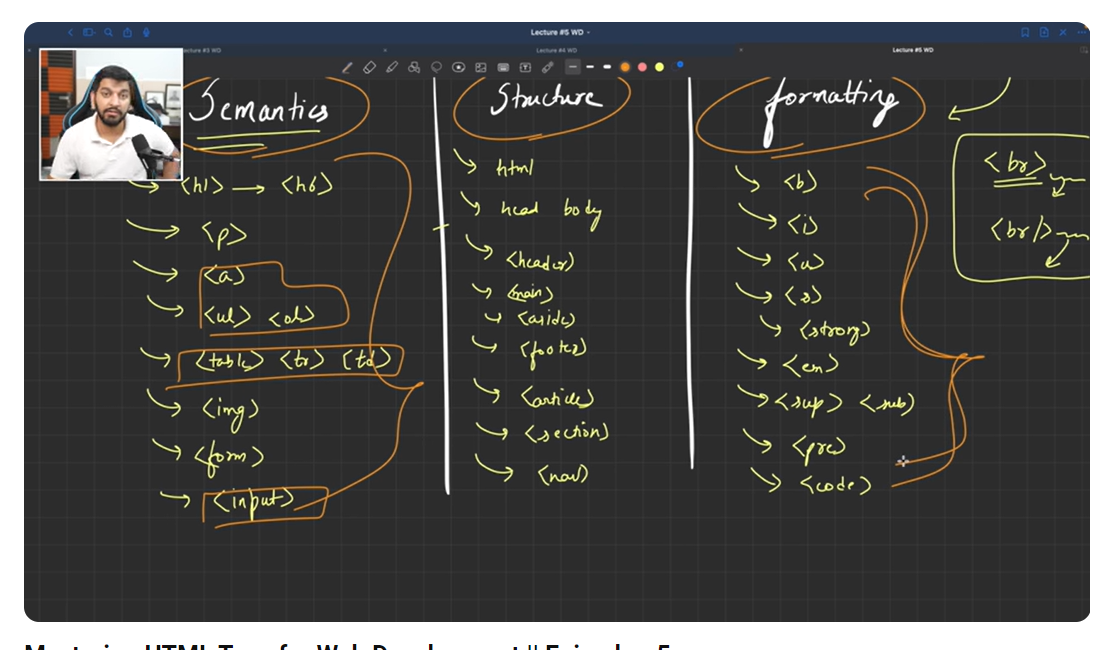 Lecture #5 WD
ecture #3 WD
Lecture #4 WD
Lecture #5 WD
Semantics
<h1> → <h6>
<p>
<a>
<ul> <ol>
<table> <tr> <td>
<img>
<form>
<input>
Structure
html
head body
<header>
<main>
<aside>
<footer>
<article>
<section>
<nav>
formatting
<b>
<i>
<u>
<s>
<strong>
<em>
<sup> <sub>
<pre>
<code>
<br>
<br/>